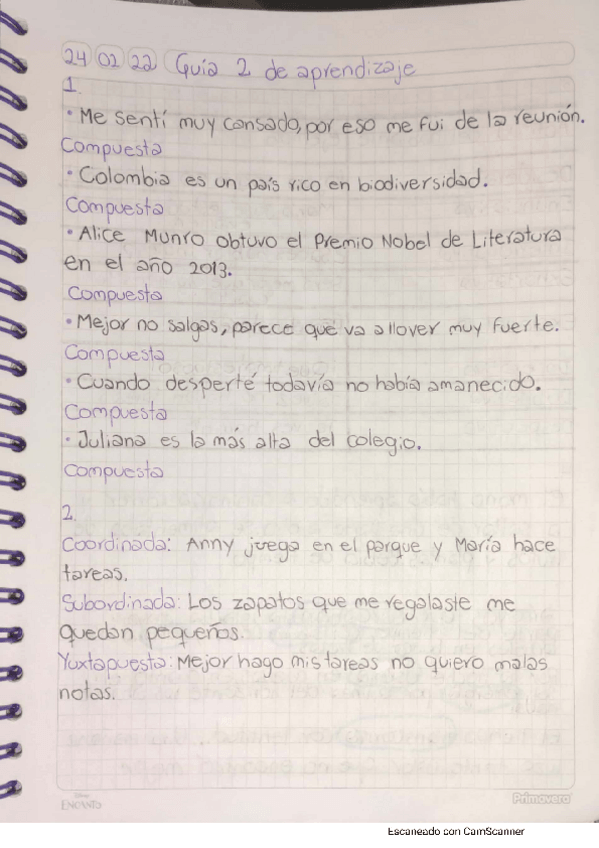 24 02 22 Guía 2 de aprendizaje
1.
• Me sentí muy cansado, por eso me fui de la reunión.
Compuesta
• Colombia es un país rico en biodiversidad.
Compuesta
• Alice Munro obtuvo el Premio Nobel de Literatura
en el año 2013.
Compuesta
• Mejor no salgas, parece que va a llover muy fuerte.
Compuesta
• Cuando desperté todavía no había amanecido.
Compuesta
• Juliana es la más alta del colegio.
Compuesta
2.
Coordinada: Anny juega en el parque y María hace
tareas.
Subordinada: Los zapatos que me regalaste me
quedan pequeños.
Yuxtapuesta: Mejor hago mis tareas no quiero malas
notas.
ENCANTO
Primavera
Escaneado con CamScanner